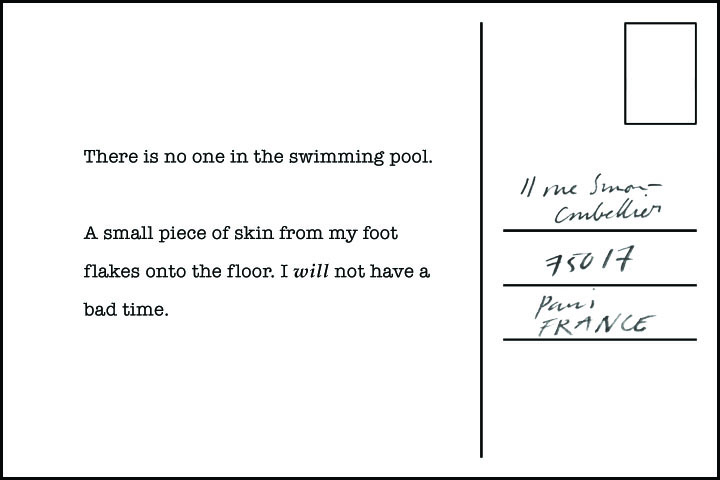 There is no one in the swimming pool.
A small piece of skin from my foot
flakes onto the floor. I will not have a
bad time.
11 rue Simon-
75017
Paris
FRANCE